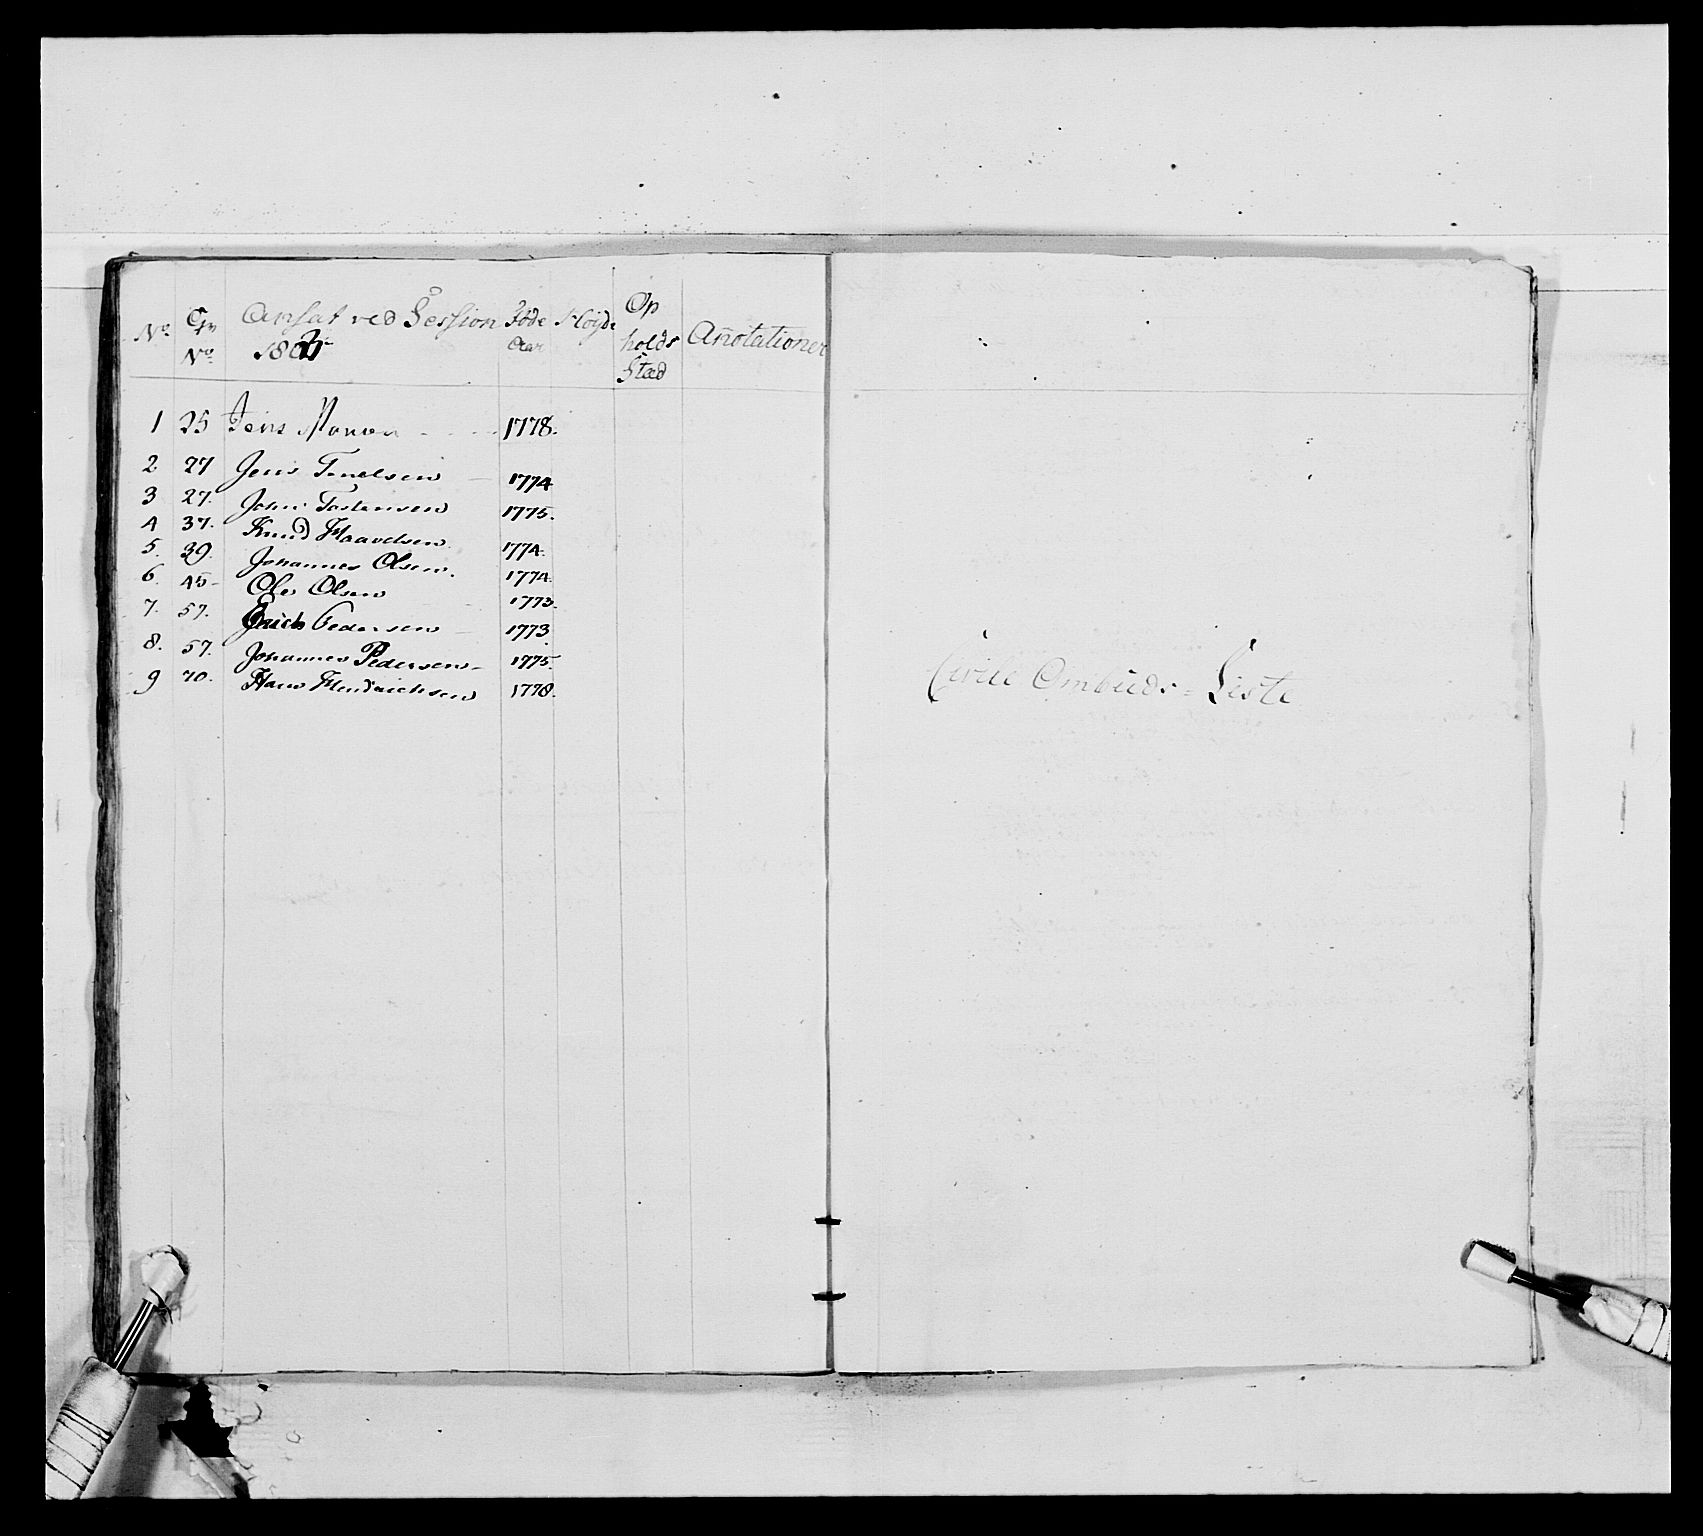 No. Gr No. Ansat ved Session 180 Føde Aar Høyde Op holds Stæd Anotationer
1 25 Jens - - - 1778.
2 27 Jens - 1774
3 27. John Tostensen 1775.
4 37. Knud Haavelsen. 1774.
5. 39. Johannes Olsen. 1774.
6. 45- Ole Olsen 1773.
7. 57. Erich Pedersen - 1773
8. 57. Johannes Pedersen - 1775.
9 70. Hans Hendrichsen 1778.
Civile Ombuds-Liste